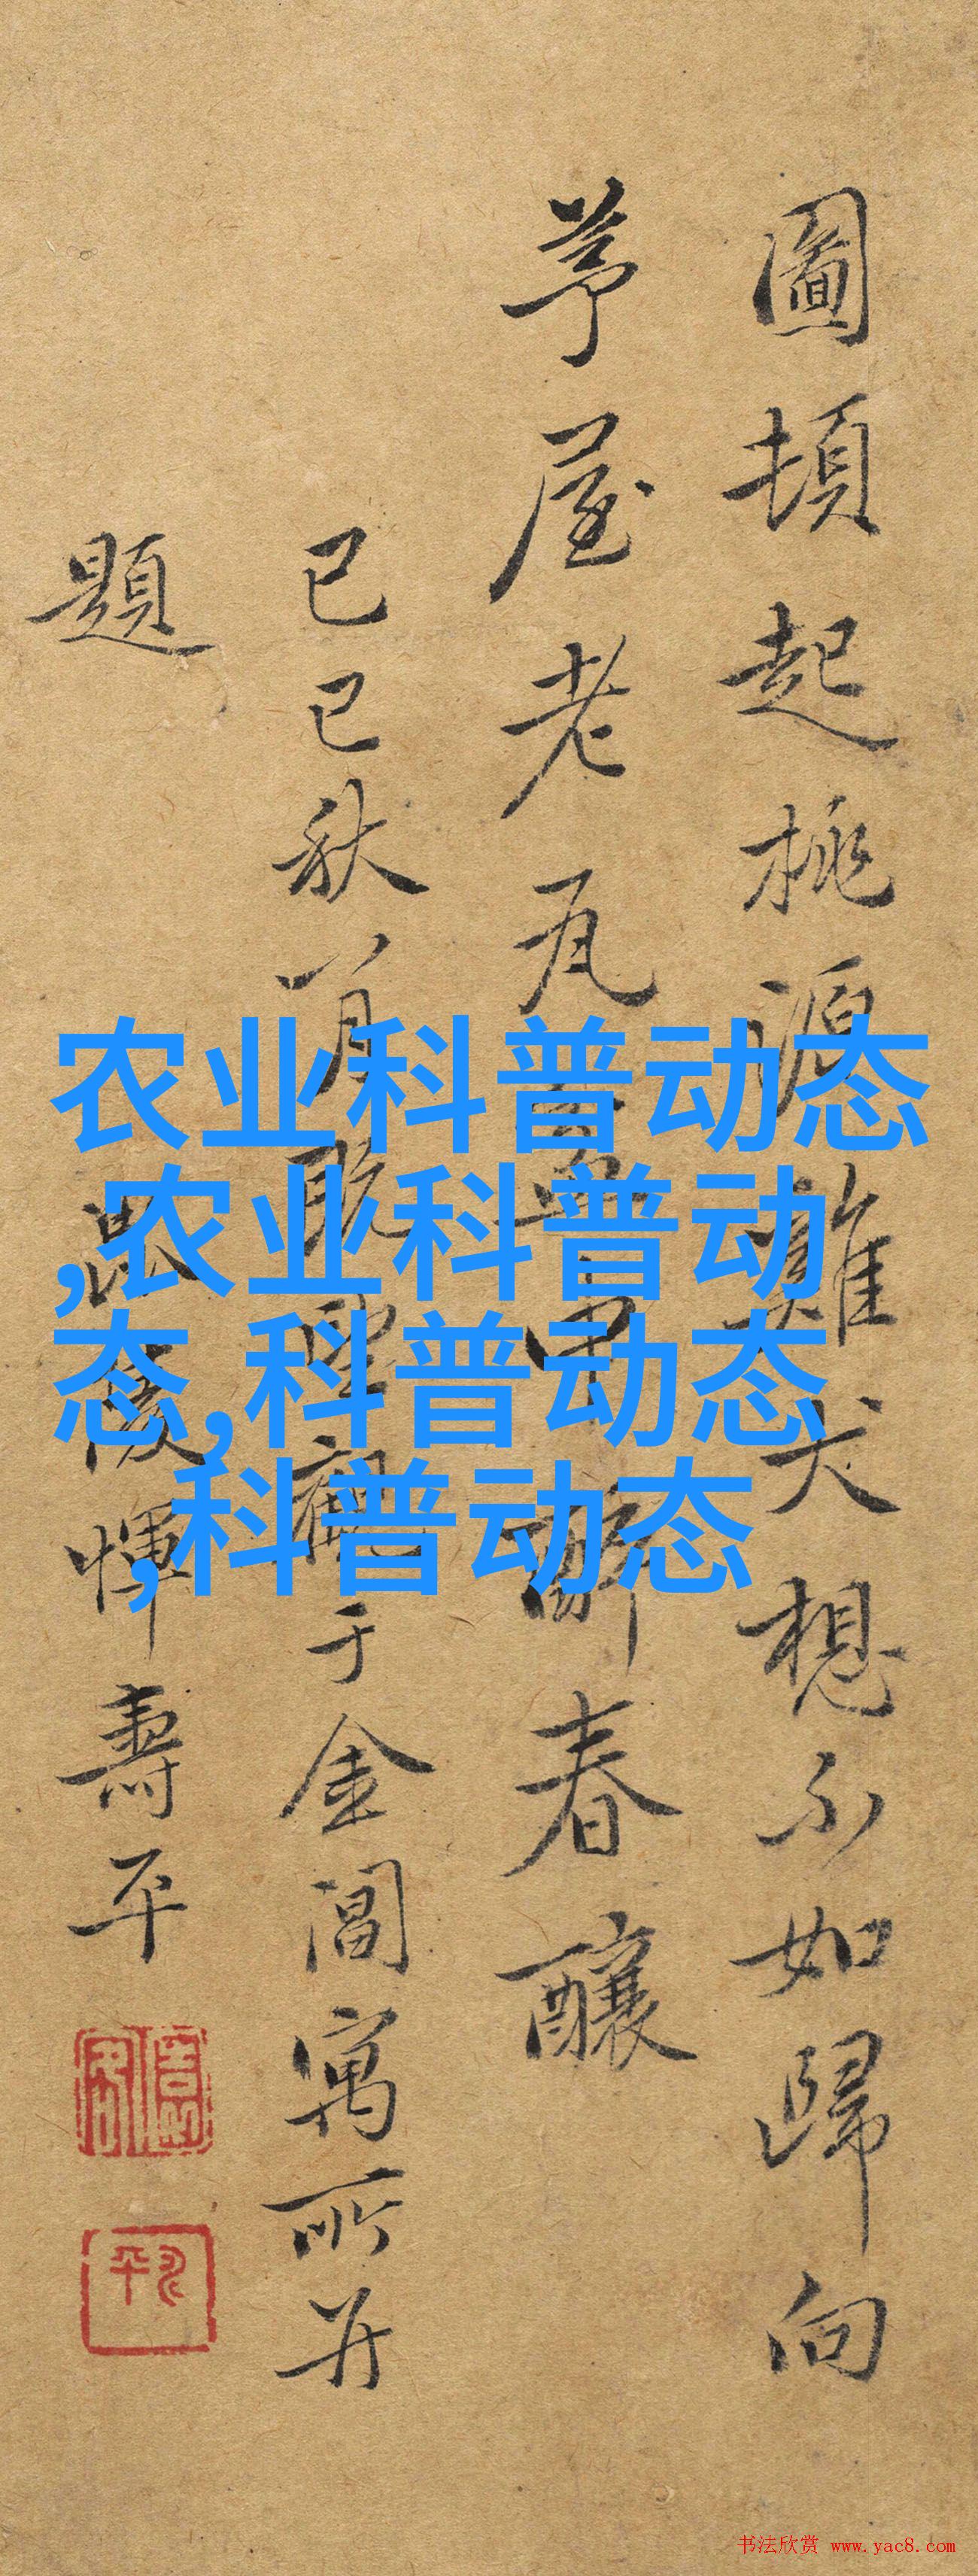 圖頓起桃源雞犬想不如歸向
茅屋老瓦盆中醉春釀
己巳秋八月既望觀于金閶寓所並
題
惲壽平
农业科普动态
,农业科普动
态,科普动态
,科普动态
书法欣赏 www.yac8.com